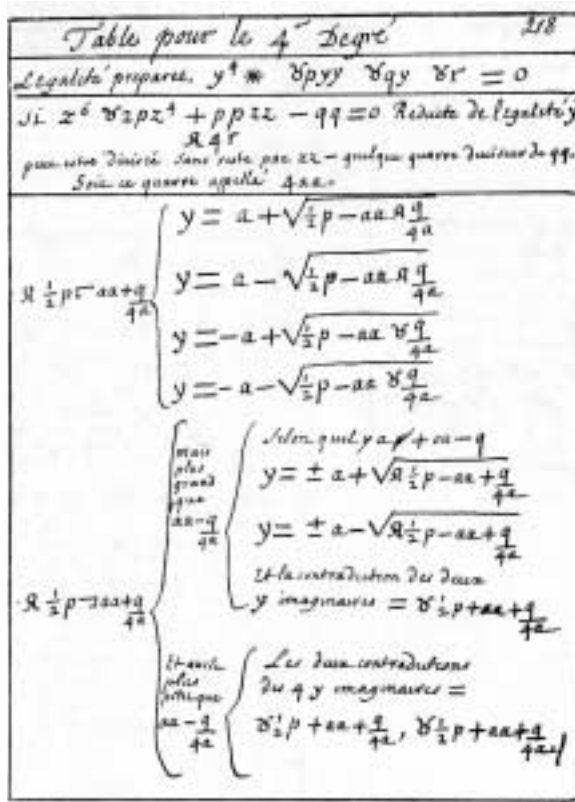 Table pour le 4ᵉ Degré 218
Legalité preparée. y⁴ * 8pyy 8qy 8r = 0
Si z⁶ 8 2pz⁴ + ppzz − qq = 0 Reduite de legalité y
Я4r
peut estre divisé sans reste par zz − quelque quarré diviseur de qq.
Soit ce quarré appellé 4aa.
Я ½p ⊏ aa + q/4a
y = a + √(½p − aa Я q/4a)
y = a − √(½p − aa Я q/4a)
y = −a + √(½p − aa 8 q/4a)
y = −a − √(½p − aa 8 q/4a)
Я ½p ⊐ aa + q/4a
mais
plus
grand
que
aa − q/4a
Selon quil y a + ou − q
y = ± a + √(Я ½p − aa + q/4a)
y = ± a − √(Я ½p − aa + q/4a)
Et la contradiction des deux
y imaginaires = 8 ½p + aa + q/4a
Et aussi
plus
que
aa − q/4a
Les deux contradictions
des 4 y imaginaires =
8 ½p + aa + q/4a, 8 ½p + aa + q/4a